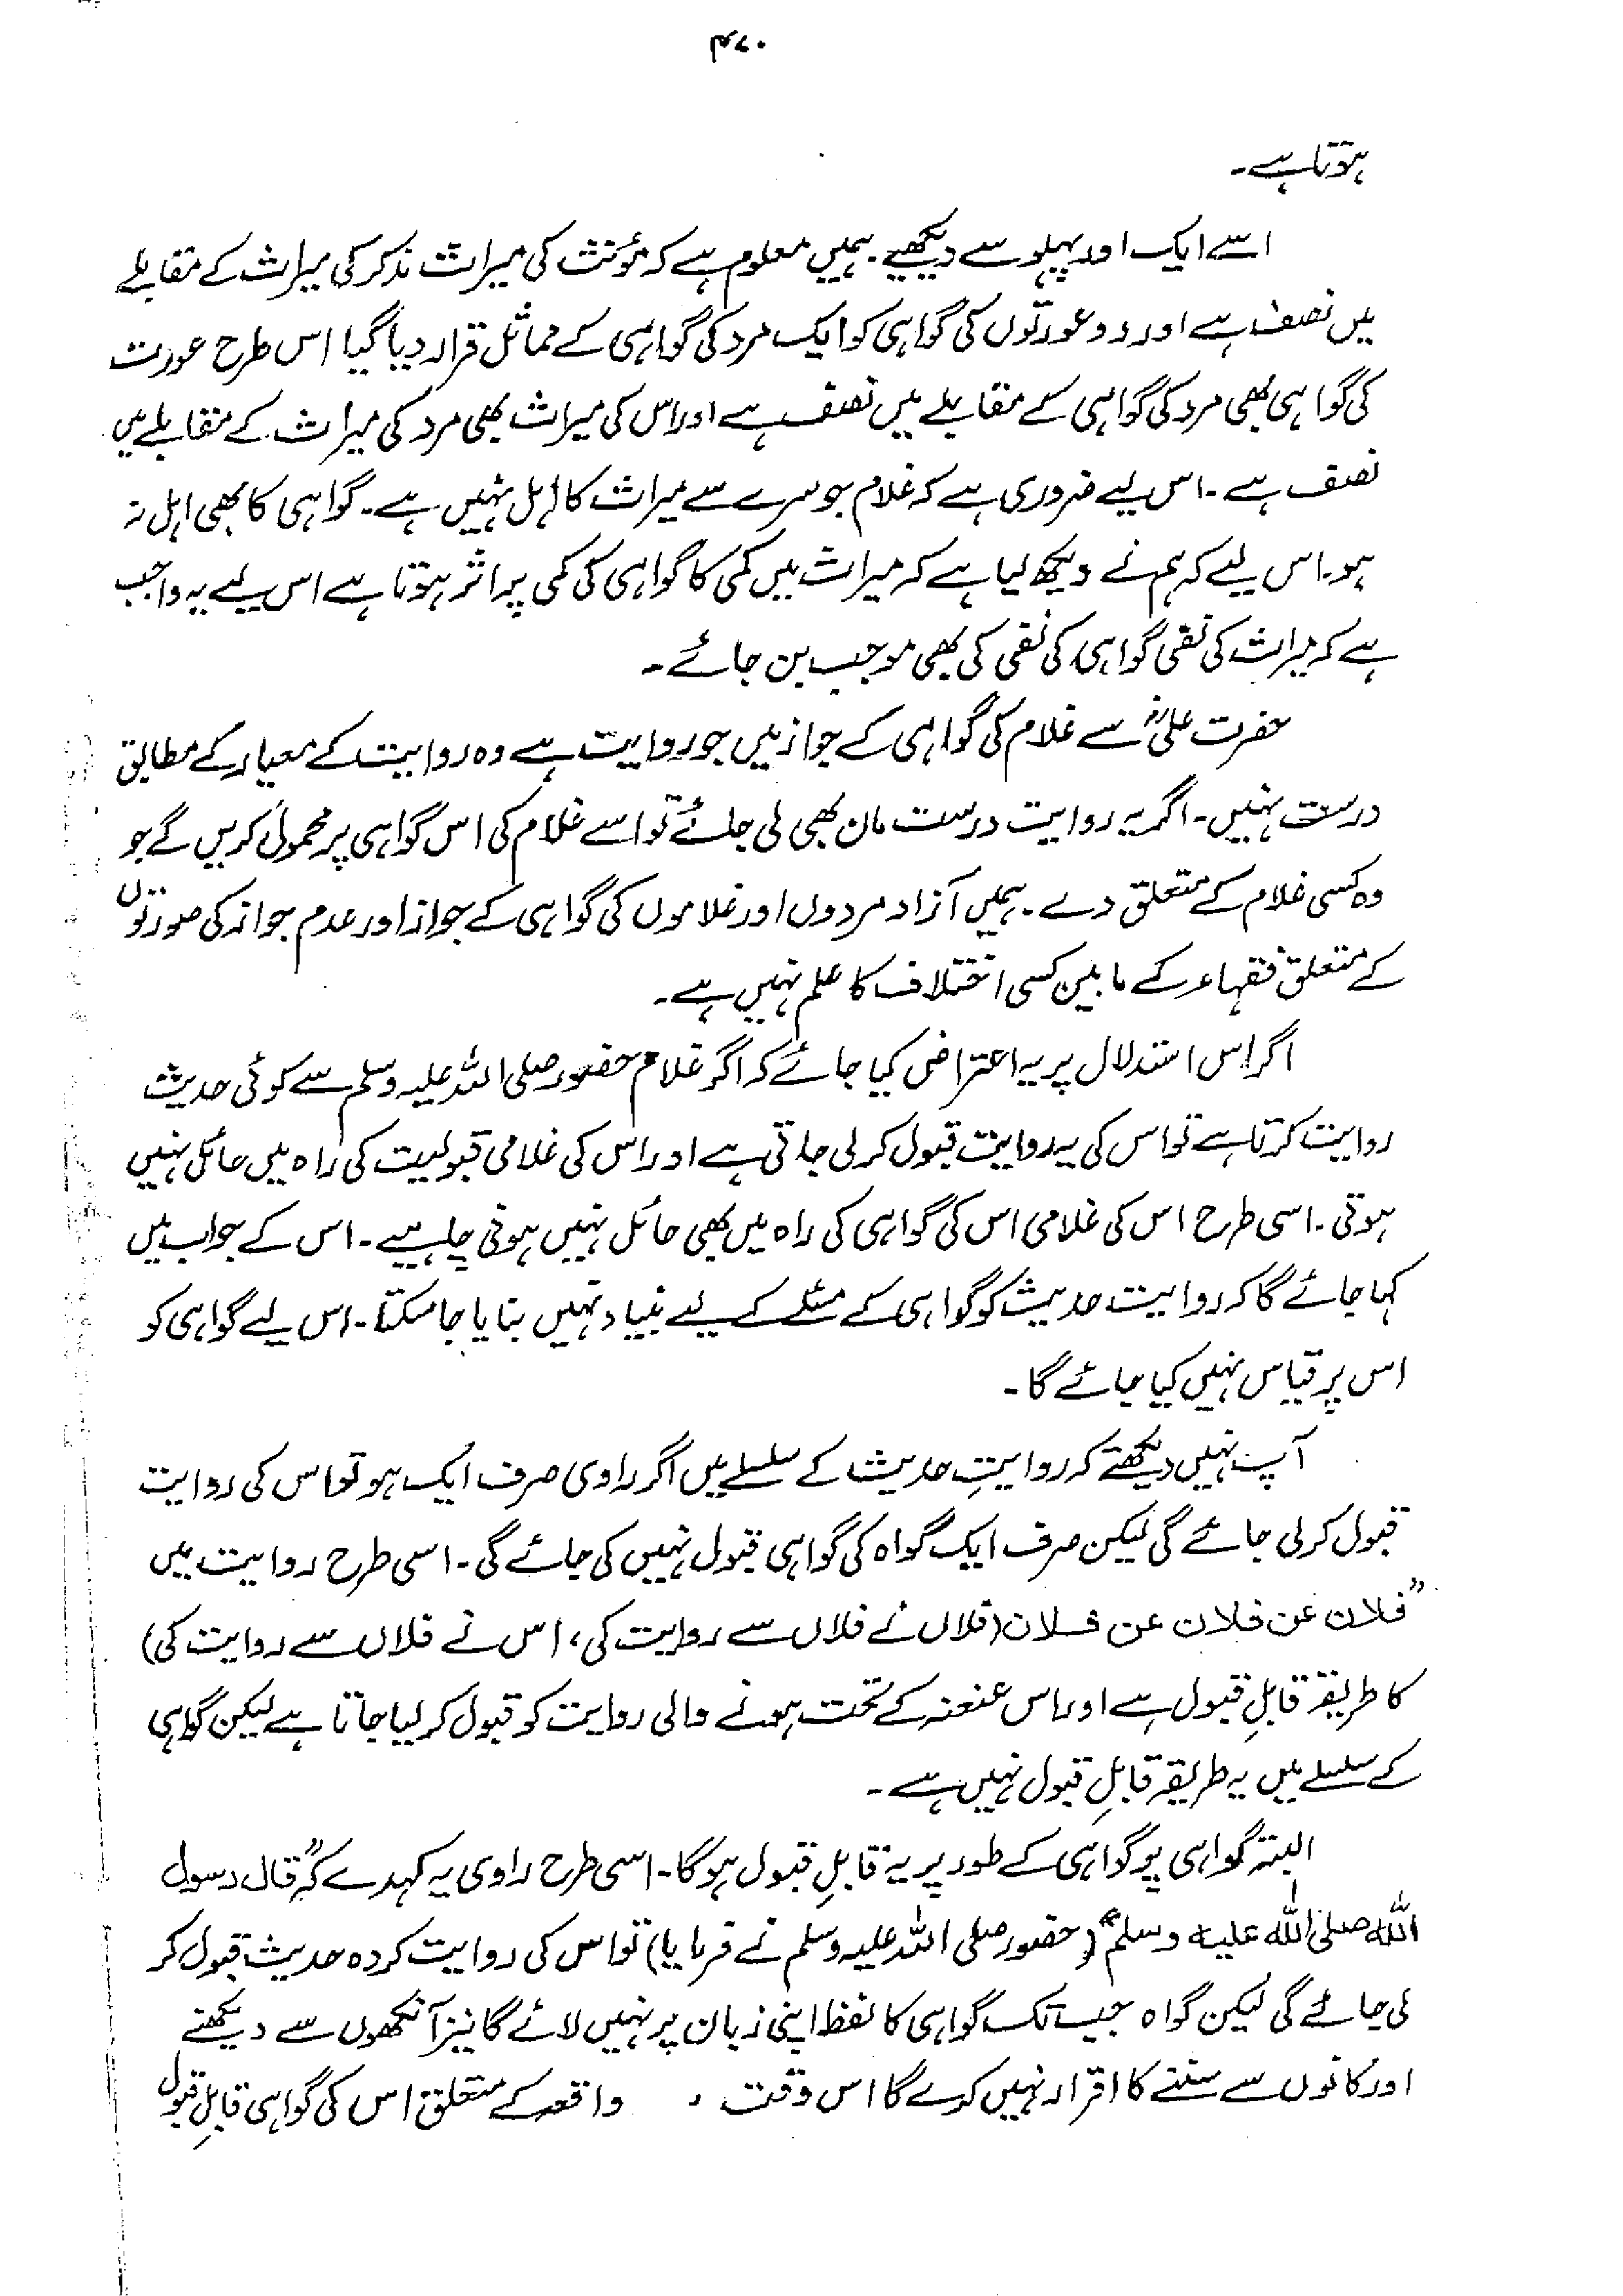 ۴۷۰
ہوتا ہے۔
اسے ایک اور پہلو سے دیکھیے۔ ہمیں معلوم ہے کہ مؤنث کی میراث مذکر کی میراث کے مقابلے
میں نصف ہے اور دو عورتوں کی گواہی کو ایک مرد کی گواہی کے مماثل قرار دیا گیا اس طرح عورت
کی گواہی بھی مرد کی گواہی کے مقابلے میں نصف ہے اور اس کی میراث بھی مرد کی میراث کے مقابلے میں
نصف ہے۔ اس لیے ضروری ہے کہ غلام جو سرے سے میراث کا اہل نہیں ہے۔ گواہی کا بھی اہل نہ
ہو۔ اس لیے کہ ہم نے دیکھ لیا ہے کہ میراث میں کمی کا گواہی کی کمی پر اثر ہوتا ہے اس لیے یہ واجب
ہے کہ میراث کی نفی گواہی کی نفی کی بھی موجب بن جائے۔
حضرت علیؓ سے غلام کی گواہی کے جواز میں جو روایت ہے وہ روایت کے معیار کے مطابق
درست نہیں۔ اگر یہ روایت درست مان بھی لی جائے تو اسے غلام کی اس گواہی پر محمول کریں گے جو
وہ کسی غلام کے متعلق دے۔ ہمیں آزاد مردوں اور غلاموں کی گواہی کے جواز اور عدم جواز کی صورتوں
کے متعلق فقہاء کے مابین کسی اختلاف کا علم نہیں ہے۔
اگر اس استدلال پر یہ اعتراض کیا جائے کہ اگر غلام حضور صلی اللہ علیہ وسلم سے کوئی حدیث
روایت کرتا ہے تو اس کی یہ روایت قبول کر لی جاتی ہے اور اس کی غلامی قبولیت کی راہ میں حائل نہیں
ہوتی۔ اسی طرح اس کی غلامی اس کی گواہی کی راہ میں بھی حائل نہیں ہونی چاہیے۔ اس کے جواب میں
کہا جائے گا کہ روایت حدیث کو گواہی کے مسئلے کے لیے بنیاد نہیں بنایا جا سکتا۔ اس لیے گواہی کو
اس پر قیاس نہیں کیا جائے گا۔
آپ نہیں دیکھتے کہ روایتِ حدیث کے سلسلے میں اگر راوی صرف ایک ہو تو اس کی روایت
قبول کر لی جائے گی لیکن صرف ایک گواہ کی گواہی قبول نہیں کی جائے گی۔ اسی طرح روایت میں
”فلان عن فلان عن فلان (فلاں نے فلاں سے روایت کی، اس نے فلاں سے روایت کی)
کا طریقہ قابلِ قبول ہے اور اس عنعنہ کے تحت ہونے والی روایت کو قبول کر لیا جاتا ہے لیکن گواہی
کے سلسلے میں یہ طریقہ قابلِ قبول نہیں ہے۔
البتہ گواہی پر گواہی کے طور پر یہ قابلِ قبول ہوگا۔ اسی طرح راوی یہ کہہ دے کہ ”قال رسول
اللہ صلی اللہ علیہ وسلم“ (حضور صلی اللہ علیہ وسلم نے فرمایا) تو اس کی روایت کردہ حدیث قبول کر
لی جائے گی لیکن گواہ جب تک گواہی کا لفظ اپنی زبان پر نہیں لائے گا نیز آنکھوں سے دیکھنے
اور کانوں سے سننے کا اقرار نہیں کرے گا اس وقت واقعہ کے متعلق اس کی گواہی قابلِ قبول